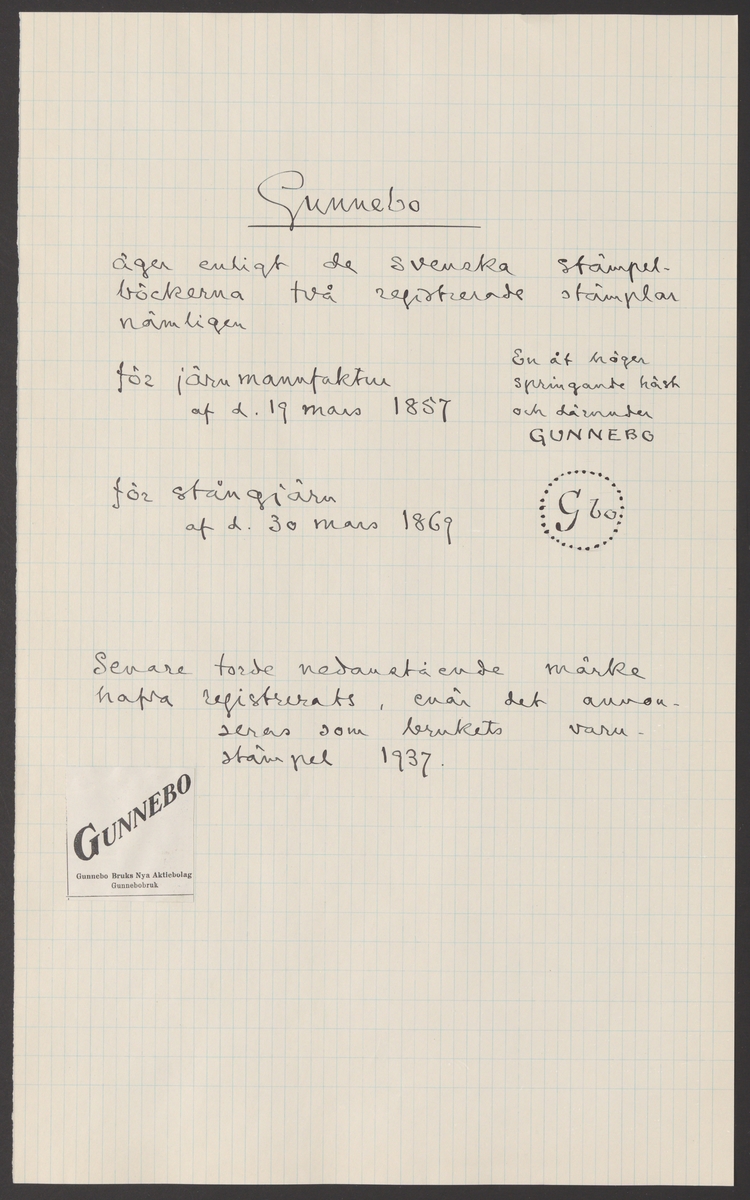 Gunnebo
äger enligt de svenska stämpel-
böckerna två registrerade stämplar
nämligen
för järnmanufaktur
af d. 19 mars 1857
En åt höger
springande häst
och därunder
GUNNEBO
för stångjärn
af d. 30 mars 1869
G bo
Senare torde nedanstående märke
hafva registrerats, enär det annon-
seras som brukets varu-
stämpel 1937.
GUNNEBO
Gunnebo Bruks Nya Aktiebolag
Gunnebobruk